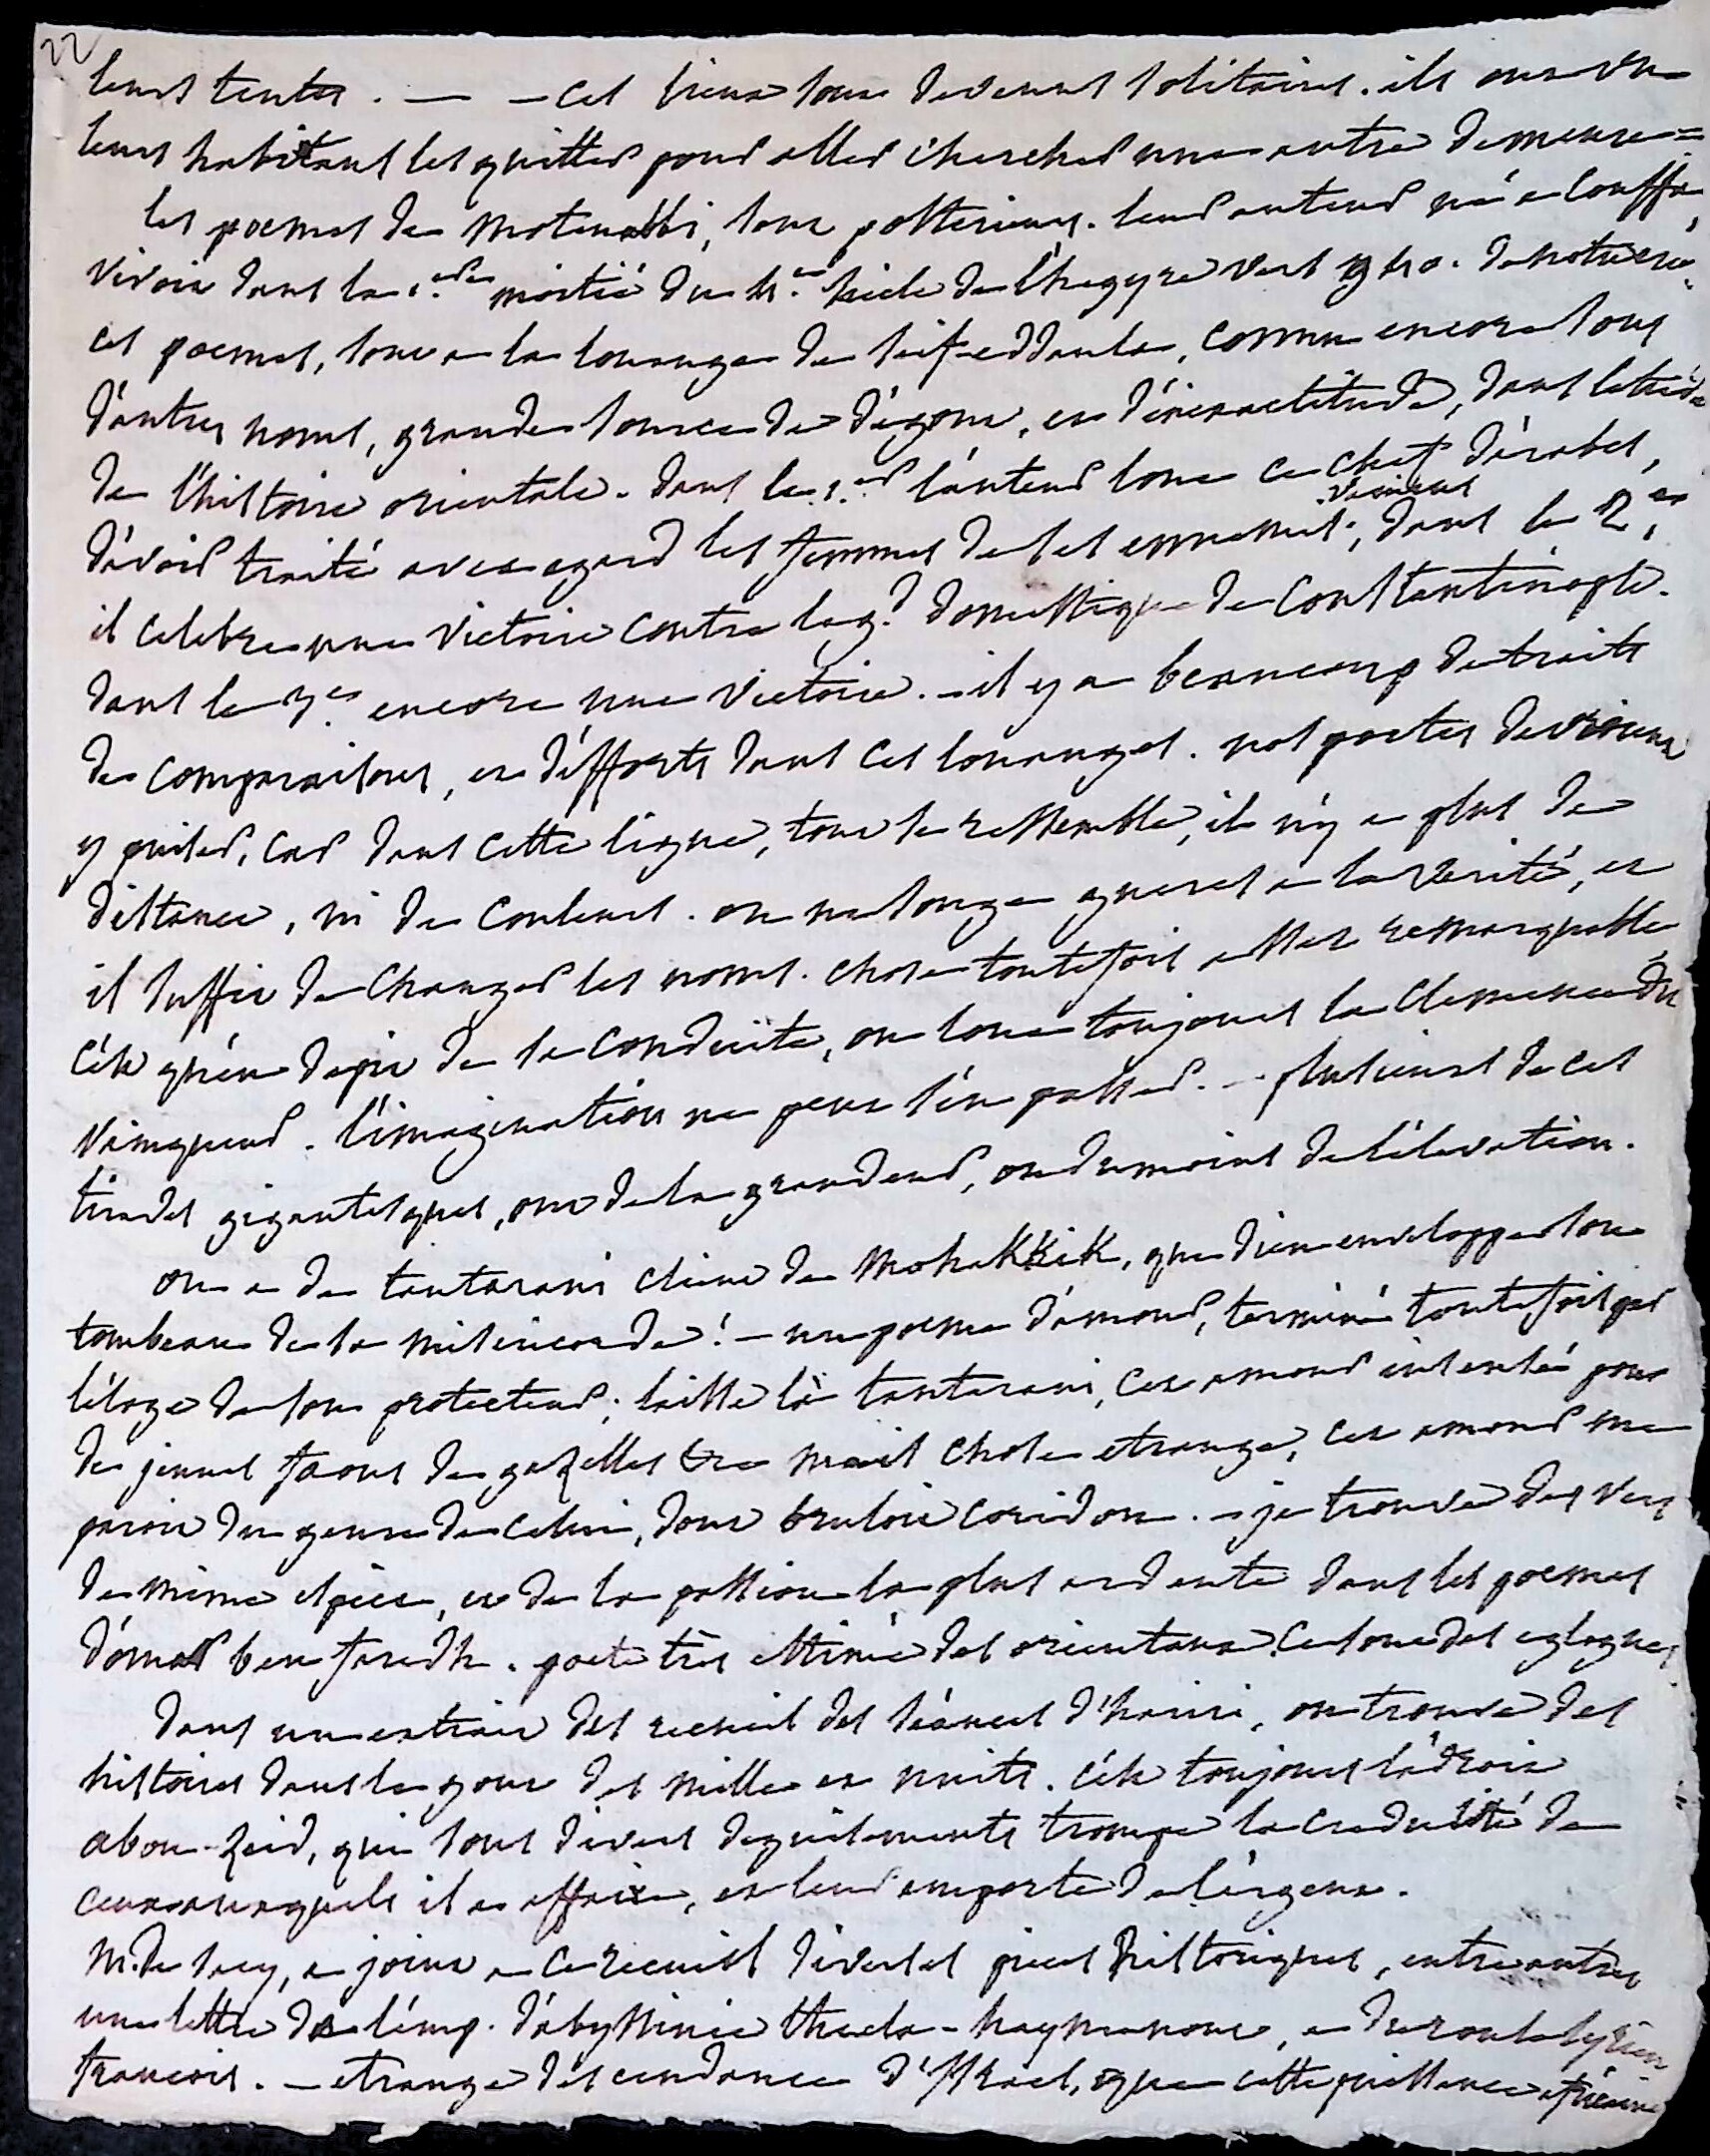 22
leurs tentes. — — ces lieux sont devenus solitaires. ils ont vu
leurs habitans les quitter pour aller chercher une autre demeure =
les poemes de Motenabbi, sont posterieurs. leur auteur né a Couffa,
vivoit dans la 1.ere moitié du 4.e siecle de l'hegyre vers 940. de notre ere.
ces poemes, sont a la louange de seif-eddaula, connu encore sous
d'autres noms, grande source de dégout, et d'inexactitude, dans l'étude
de l'histoire orientale. dans le 1.er l'auteur loue ce chef d'arabes,
d'avoir traité avec egard les femmes de ses ennemis vaincus; dans le 2.e,
il celebre une victoire contre le g.d domestique de Constantinople.
dans le 3.e encore une victoire. — il y a beaucoup de traits
de comparaisons, et d'efforts dans ces louanges. nos poetes devroient
y puiser, car dans cette ligne, tout se ressemble, il n'y a plus de
distance, ni de couleurs. on ne songe gueres a la verité, et
il suffit de changer les noms. chose toutefois assez remarquable
c'est qu'en depit de sa conduite, on loue toujours la clemence du
vainqueur. l'imagination ne peut s'en passer. — plusieurs de ces
tirades gigantesques, ont de la grandeur, ou du moins de l'élevation.
on a de tantarani eleve de Mohakkik, que dieu enveloppe son
tombeau de sa misericorde! — un poeme d'amour, terminé toutefois par
l'éloge de son protecteur; laisse là tantarani, cet amour insensé pour
de jeunes faons de gazelles mais chose etrange, cet amour me
paroit du genre de celui, dont bruloit coridon. — je trouve des vers
de même espece, et de la passion la plus ardente dans les poemes
d'omar ben faredh. poete très estimé des orientaux. ce sont des eglogues.
dans un extrait des recueil des séances d'hariri, on trouve des
histoires dans le gout des mille et nuits. c'est toujours l'adroit
abou-zeid, qui sous divers deguisements trompe la credulité de
ceux auxquels il a affaire, et leur emporte de l'argent.
M. de Sacy, a joint a ce recueil diverses pieces historiques, entre autres
une lettre de l'emp. d'abyssinie thecla-haymanout, a du roule syrien
francois. — etrange descendance d'Israel, que cette puissance africaine